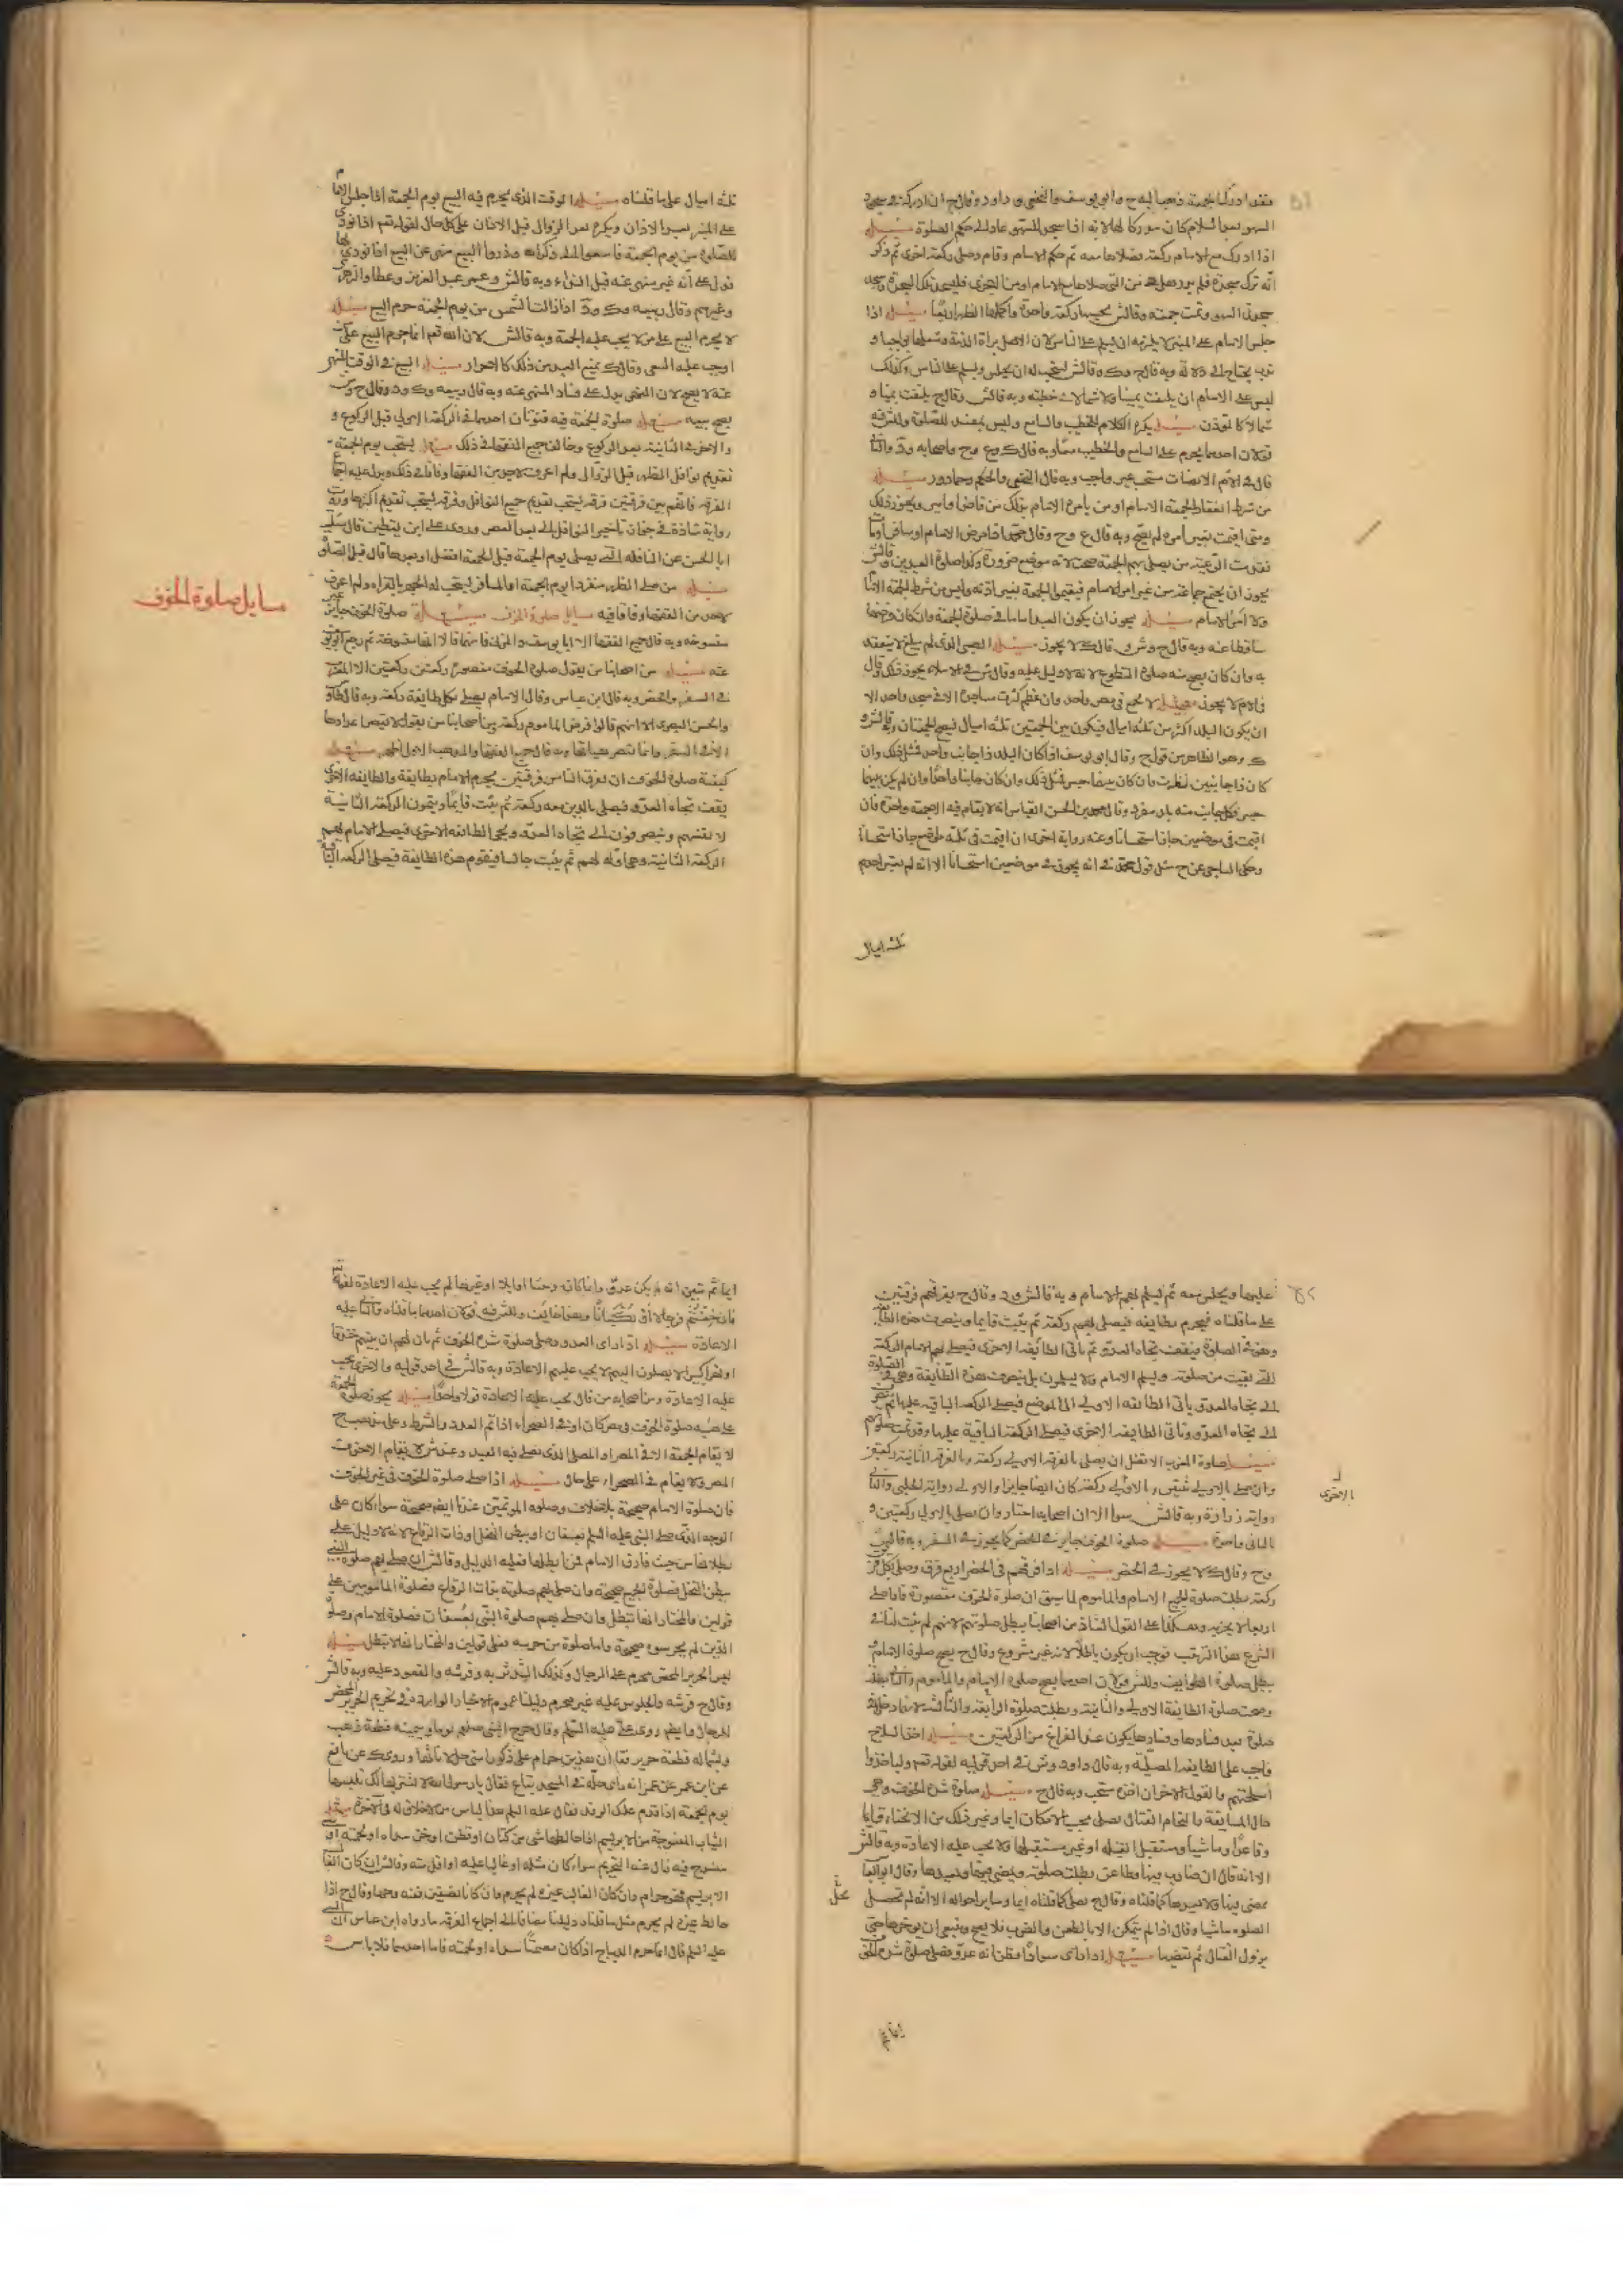 فقد ادرك الجمعة ذهب اليه ح وابو يوسف والنخعي و داود وقال ح ان ادركه في سجود
السهو بعد السلام كان مدركا لها لانه اذا سجد للسهو عاد الى حكم الصلوة مسئله
اذا ادرك مع الامام ركعة فصلاها معه ثم سلم الامام وقام وصلى ركعة اخرى ثم ذكر
انه ترك سجدة فلم يدر هل هي من التي صلاها مع الامام او من الاخرى فليسجد تلك السجدة ويسجد
سجدتي السهو وتمت جمعته وقال ش يحسب له ركعة واحدة ويتمها الظهر اربعا مسئله اذا
جلس الامام على المنبر لا يلزمه ان يسلم على الناس لان الاصل براة الذمة وشغلها بواجب او
ندب يحتاج الى دلالة وبه قال ح وك وقال ش يستحب له ان يجلس ويسلم على الناس وكذلك
ليس على الامام ان يلتفت يمينا ولا شمالا في خطبته وبه قال ش وقال ح يلتفت يمينا و
شمالا كالمؤذن مسئله يكره الكلام للخطيب والسامع وليس بمفسد للصلوة وللش فيه
قولان احدهما يحرم على السامع والخطيب معا وبه قال ك وع وح واصحابه ود والثاني
قال في الام الانصات مستحب غير واجب وبه قال النخعي والحكم وحماد ور مسئله
من شرط انعقاد الجمعة الامام او من يامره الامام بذلك من قاض او امير ويجوز ذلك
ومتى اقيمت بغير امره لم تصح وبه قال ع وح وقال محمد اذا مرض الامام او سافر او مات
فقدمت الرعية من يصلي بهم الجمعة صحت لانه موضع ضرورة وكذا صلوة العيدين وقال ش
يجوز ان يجتمع جماعة من غير امر الامام فيقيموا الجمعة بغير اذنه وليس من شرط الجمعة الامام
ولا امر الامام مسئله يجوز ان يكون العبد اماما في صلوة الجمعة وان كان فرضها
ساقطا عنه وبه قال ح وش و قال ك لا يجوز مسئله الصبي الذي لم يبلغ لا ينعقد
به وان كان يصح منه صلوة التطوع لانه لا دليل عليه وقال ش في الاملاء يجوز ذلك وقال
في الام لا يجوز مسئله لا يجمع في مصر واحد وان عظم وكثرت مساجده الا في مسجد واحد الا
ان يكون البلد اكثر من ثلثة اميال فيكون بين الجمعتين ثلثة اميال فيصح الجمعتان وقال ش و
ك وهو الظاهر من قول ح وقال ابو يوسف اذا كان البلد ذا جانب واحد فمثل ذلك وان
كان ذا جانبين نظرت فان كان بينهما جسر فمثل ذلك وان كان جانبا واحدا وان لم يكن بينهما
جسر فكل جانب منه بلد مفرد وقال محمد بن الحسن القياس انه لا يقام فيه الا جمعة واحدة فان
اقيمت في موضعين جاز استحسانا وعنه رواية اخرى ان اقيمت في ثلثة مواضع جاز استحسانا
وحكى الساجي عن ح مثل قول محمد في انه يجوز في موضعين استحسانا الا انه لم يعتبر احدهم
ثلثة اميال
ثلثة اميال على ما قلناه مسئله الوقت الذي يحرم فيه البيع يوم الجمعة اذا جلس الامام
على المنبر بعد الاذان ويكره بعد الزوال قبل الاذان على كل حال لقوله تعم اذا نودي
للصلوة من يوم الجمعة فاسعوا الى ذكر الله وذروا البيع نهى عن البيع اذا نودي لها
فدل على انه غير منهي عنه قبل النداء وبه قال ش وعمر عبد العزيز وعطا والزهري
وغيرهم وقال ربيعه وك ود اذا زالت الشمس من يوم الجمعة حرم البيع مسئله
لا يحرم البيع على من لا يجب عليه الجمعة وبه قال ش لان الله تعم انما حرم البيع على من
اوجب عليه السعي وقال ك يمنع العبد من ذلك كالاحرار مسئله البيع في الوقت المنهي
عنه لا يصح لان النهي يدل على فساد المنهي عنه وبه قال ربيعه وك ود وقال ح وش
يصح بيعه مسئله صلوة الجمعة فيه قنوتان احدهما في الركعة الاولى قبل الركوع و
والاخر في الثانية بعد الركوع وخالف جميع الفقها في ذلك مسئله يستحب يوم الجمعة
تقديم نوافل الظهر قبل الزوال ولم اعرف لاحد من الفقها وفاقا في ذلك ويدل عليه اجماع
الفرقة فانهم بين فرقتين فرقة يستحب تقديم جميع النوافل وفرقة يستحب تقديم اكثرها وردت
رواية شاذة في جواز تاخير النوافل الى بعد العصر وروى علي ابن يقطين قال سئلت
ابا الحسن عن النافلة التي يصلى يوم الجمعة قبل الجمعة افضل او بعدها قال قبل الصلوة
مسئله من صلى الظهر منفردا يوم الجمعة او المسافر يستحب له الجهر بالقراءة ولم اعرف
لاحد من الفقها وفاقا فيه مسايل صلوة الخوف مسئله صلوة الخوف جايزة غير
منسوخة وبه قال جميع الفقها الا ابا يوسف والمزني فانهما قالا انها منسوخة ثم رجع ابو يوسف
عنه مسئله من اصحابنا من يقول صلوة الخوف مقصورة ركعتين ركعتين الا المغرب
في السفر والحضر وبه قال ابن عباس وقال الامام يصلي بكل طايفة ركعة وبه قال طاوس
والحسن البصري الا انهم قالوا فرض الماموم ركعة ومن اصحابنا من يقول لا يقصر عددها
الا في السفر وانما تقصر هيئاتها وبه قال جميع الفقها والمذهب الاول اظهر مسئله
كيفية صلوة الخوف ان تفرق الناس فرقتين يحرم الامام بطايفة والطايفة الاخرى
يقف تجاه العدو فيصلي بالذين معه ركعة ثم يثبت قايما ويتمون الركعة الثانية
لا نفسهم وينصرفون الى تجاه العدو ويجئ الطايفة الاخرى فيصلي الامام بهم
الركعة الثانية وهي اوله لهم ثم يثبت جالسا فيقوم هذه الطايفة فيصلي الركعة الثانية
مسايل صلوة الخوف
عليها ويجلس معه ثم يسلم بهم الامام وبه قال ش ود وقال ح يفرقهم فرقتين
على ما قلناه فيحرم بطايفة فيصلي بهم ركعة ثم يثبت قايما وينصرف هذه الطايفة
وهو في الصلوة فيقف تجاه العدو ثم تاتي الطايفة الاخرى فيصلي بهم الامام الركعة
التي بقيت من صلوته ويسلم الامام ولا يسلمون بل ينصرف هذه الطايفة وهي في الصلوة
الى تجاه العدو ياتي الطايفة الاولى الى الموضع فيصلي الركعة الباقية عليها ثم تنصرف
الى تجاه العدو وتاتي الطايفة الاخرى فيصلي الركعة الباقية عليها وقد تمت صلوتهم
مسئله صلوة المغرب الافضل ان يصلي بالفرقة الاولى ركعة وبالفرقة الثانية ركعتين
وان صلى بالاولى ثنتين وبالاخرى ركعة كان ايضا جايزا والاولى رواية الحلبي والثاني
رواية زرارة وبه قال ش سوا الا ان اصحابه اختاروا ان يصلي بالاولى ركعتين و
بالثاني واحدة مسئله صلوة الخوف جايزة في الحضر كما يجوز في السفر وبه قال ش
وح وقال ك لا يجوز في الحضر مسئله اذا فرقهم في الحضر اربع فرق وصلى بكل فرقة
ركعة بطلت صلوة الجميع الامام والماموم لما سبق ان صلوة الخوف مقصورة فاذا صلى
اربعا لا يجزيه وهكذا على القول الشاذ من اصحابنا يبطل صلوتهم لانهم لم يثبت لنا في
الشرع هذا الترتيب فوجب ان يكون باطلا لانه غير مشروع وقال ح يصح صلوة الامام و
يبطل صلوة الطوايف وللش قولان احدهما يصح صلوة الامام والماموم والثاني يبطل
وصحت صلوة الطايفة الاولى والثانية وبطلت صلوة الرابعة والثالثة لانها دخلت في
صلوة بعد فسادها وفسادها يكون عند الفراغ من الركعتين مسئله اخذ السلاح
واجب على الطايفة المصلية وبه قال داود وش في احد قوليه لقوله تعم ولياخذوا
اسلحتهم والقول الاخر ان اخذه مستحب وبه قال ح مسئله صلوة شدة الخوف وهي
حال المسايفة والتحام القتال يصلي بحسب الامكان ايماء وغير ذلك من الانحناء قايما
وقاعدا وماشيا ومستقبل القبلة او غير مستقبلها ولا يجب عليه الاعادة وبه قال ش
الا انه قال ان ضارب فيها وطاعن بطلت صلوته ويمضي فيها ويعيدها وقال ابو العباس
يمضي فيها ولا يعيدها كما قلناه وقال ح يصلي كما قلناه ايماء وساير احواله الا انه لم تصل
الصلوه ماشيا وقال اذا لم يتمكن الا بالطعن والضرب فلا يصح وينبغي ان يوخرها حتى
يزول القتال ثم يقضيها مسئله اذا راى سوادا فظن انه عدو فصلى صلوة شدة الخوف
بالاخرى
ايماء ثم
ايماء ثم تبين انه لم يكن عدو وانما كان وحشا او ابلا او غيرهما لم يجب عليه الاعادة لقوله تعم
فان خفتم فرجالا او ركبانا وهذا خايف وللش فيه قولان احدهما ما قلناه والثاني عليه
الاعادة مسئله اذا راى العدو وصلى صلوة شدة الخوف ثم بان لهم ان بينهم خندقا
او نهرا كبيرا لا يصلون اليهم لا يجب عليهم الاعادة وبه قال ش في احد قوليه والاخر يجب
عليه الاعادة ومن اصحابه من قال يجب عليه الاعادة قولا واحدا مسئله يجوز صلوة الجمعة
على هيئة صلوة الخوف في مصر كان او في الصحراء اذا تم العدد والشرط وعلى مذهب ح
لا يقام الجمعة الا في المصر او المصلى الذي يصلي فيه العيد وعند ش لا يقام الا في جوف
المصر ولا يقام في الصحراء على حال مسئله اذا صلى صلوة الخوف في غير الخوف
فان صلوة الامام صحيحة بلا خلاف وصلوة الموتمين عندنا ايضا صحيحة سواء كان على
الوجه الذي صلى النبي عليه السلم بعسفان او ببطن النخل او ذات الرقاع لانه لا دليل على
بطلانها من حيث فارق الامام فمن ابطلها فعليه الدليل وقال ش ان صلى بهم صلوة النبي
ببطن النخل فصلوة الجميع صحيحة وان صلى بهم صلوته بذات الرقاع فصلوة المامومين على
قولين والمختار انها تبطل وان صلى بهم صلوة النبي بعسفان فصلوة الامام وصلوة
الذين لم يحرسوه صحيحة واما صلوة من حرسه فعلى قولين والمختار انها لا تبطل مسئله
لبس الحرير المحض محرم على الرجال وكذلك التدثر به وفرشه والقعود عليه وبه قال ش
وقال ح فرشه والجلوس عليه غير محرم دليلنا عموم الاخبار الواردة في تحريم الحرير المحض
للرجال وايضا روى علي عليه السلم وقال خرج النبي صلعم يوما وبيمينه قطعة ذهب
وبشماله قطعة حرير فقال ان هذين حرام على ذكور امتي حل لاناثها وروى ك عن نافع
عن ابن عمر عن عمر انه راى حلة في المسجد تباع فقال يا رسول الله لا اشتريها لك تلبسها
يوم الجمعة اذا قدم عليك الوفد فقال عليه السلم هذا لباس من لا خلاق له في الاخرة مسئله
الثياب المنسوجة من الابريسم اذا خالطها شي من كتان او قطن او خز سداه او لحمته او شي
منسوج فيه زال عنه التحريم سواء كان مثله او غالبا عليه او اقل منه وقال ش ان كان الغالب
الابريسم فهو حرام وان كان الغالب غيره لم يحرم وان كانا نصفين ففيه وجهان وقال ح اذا
خالط غيره لم يحرم مثل ما قلناه دليلنا مضافا الى اجماع الفرقة ما رواه ابن عباس ان النبي
عليه السلم قال انما حرم الديباج اذا كان مصمتا سداه او لحمته فاما احدهما فلا باس